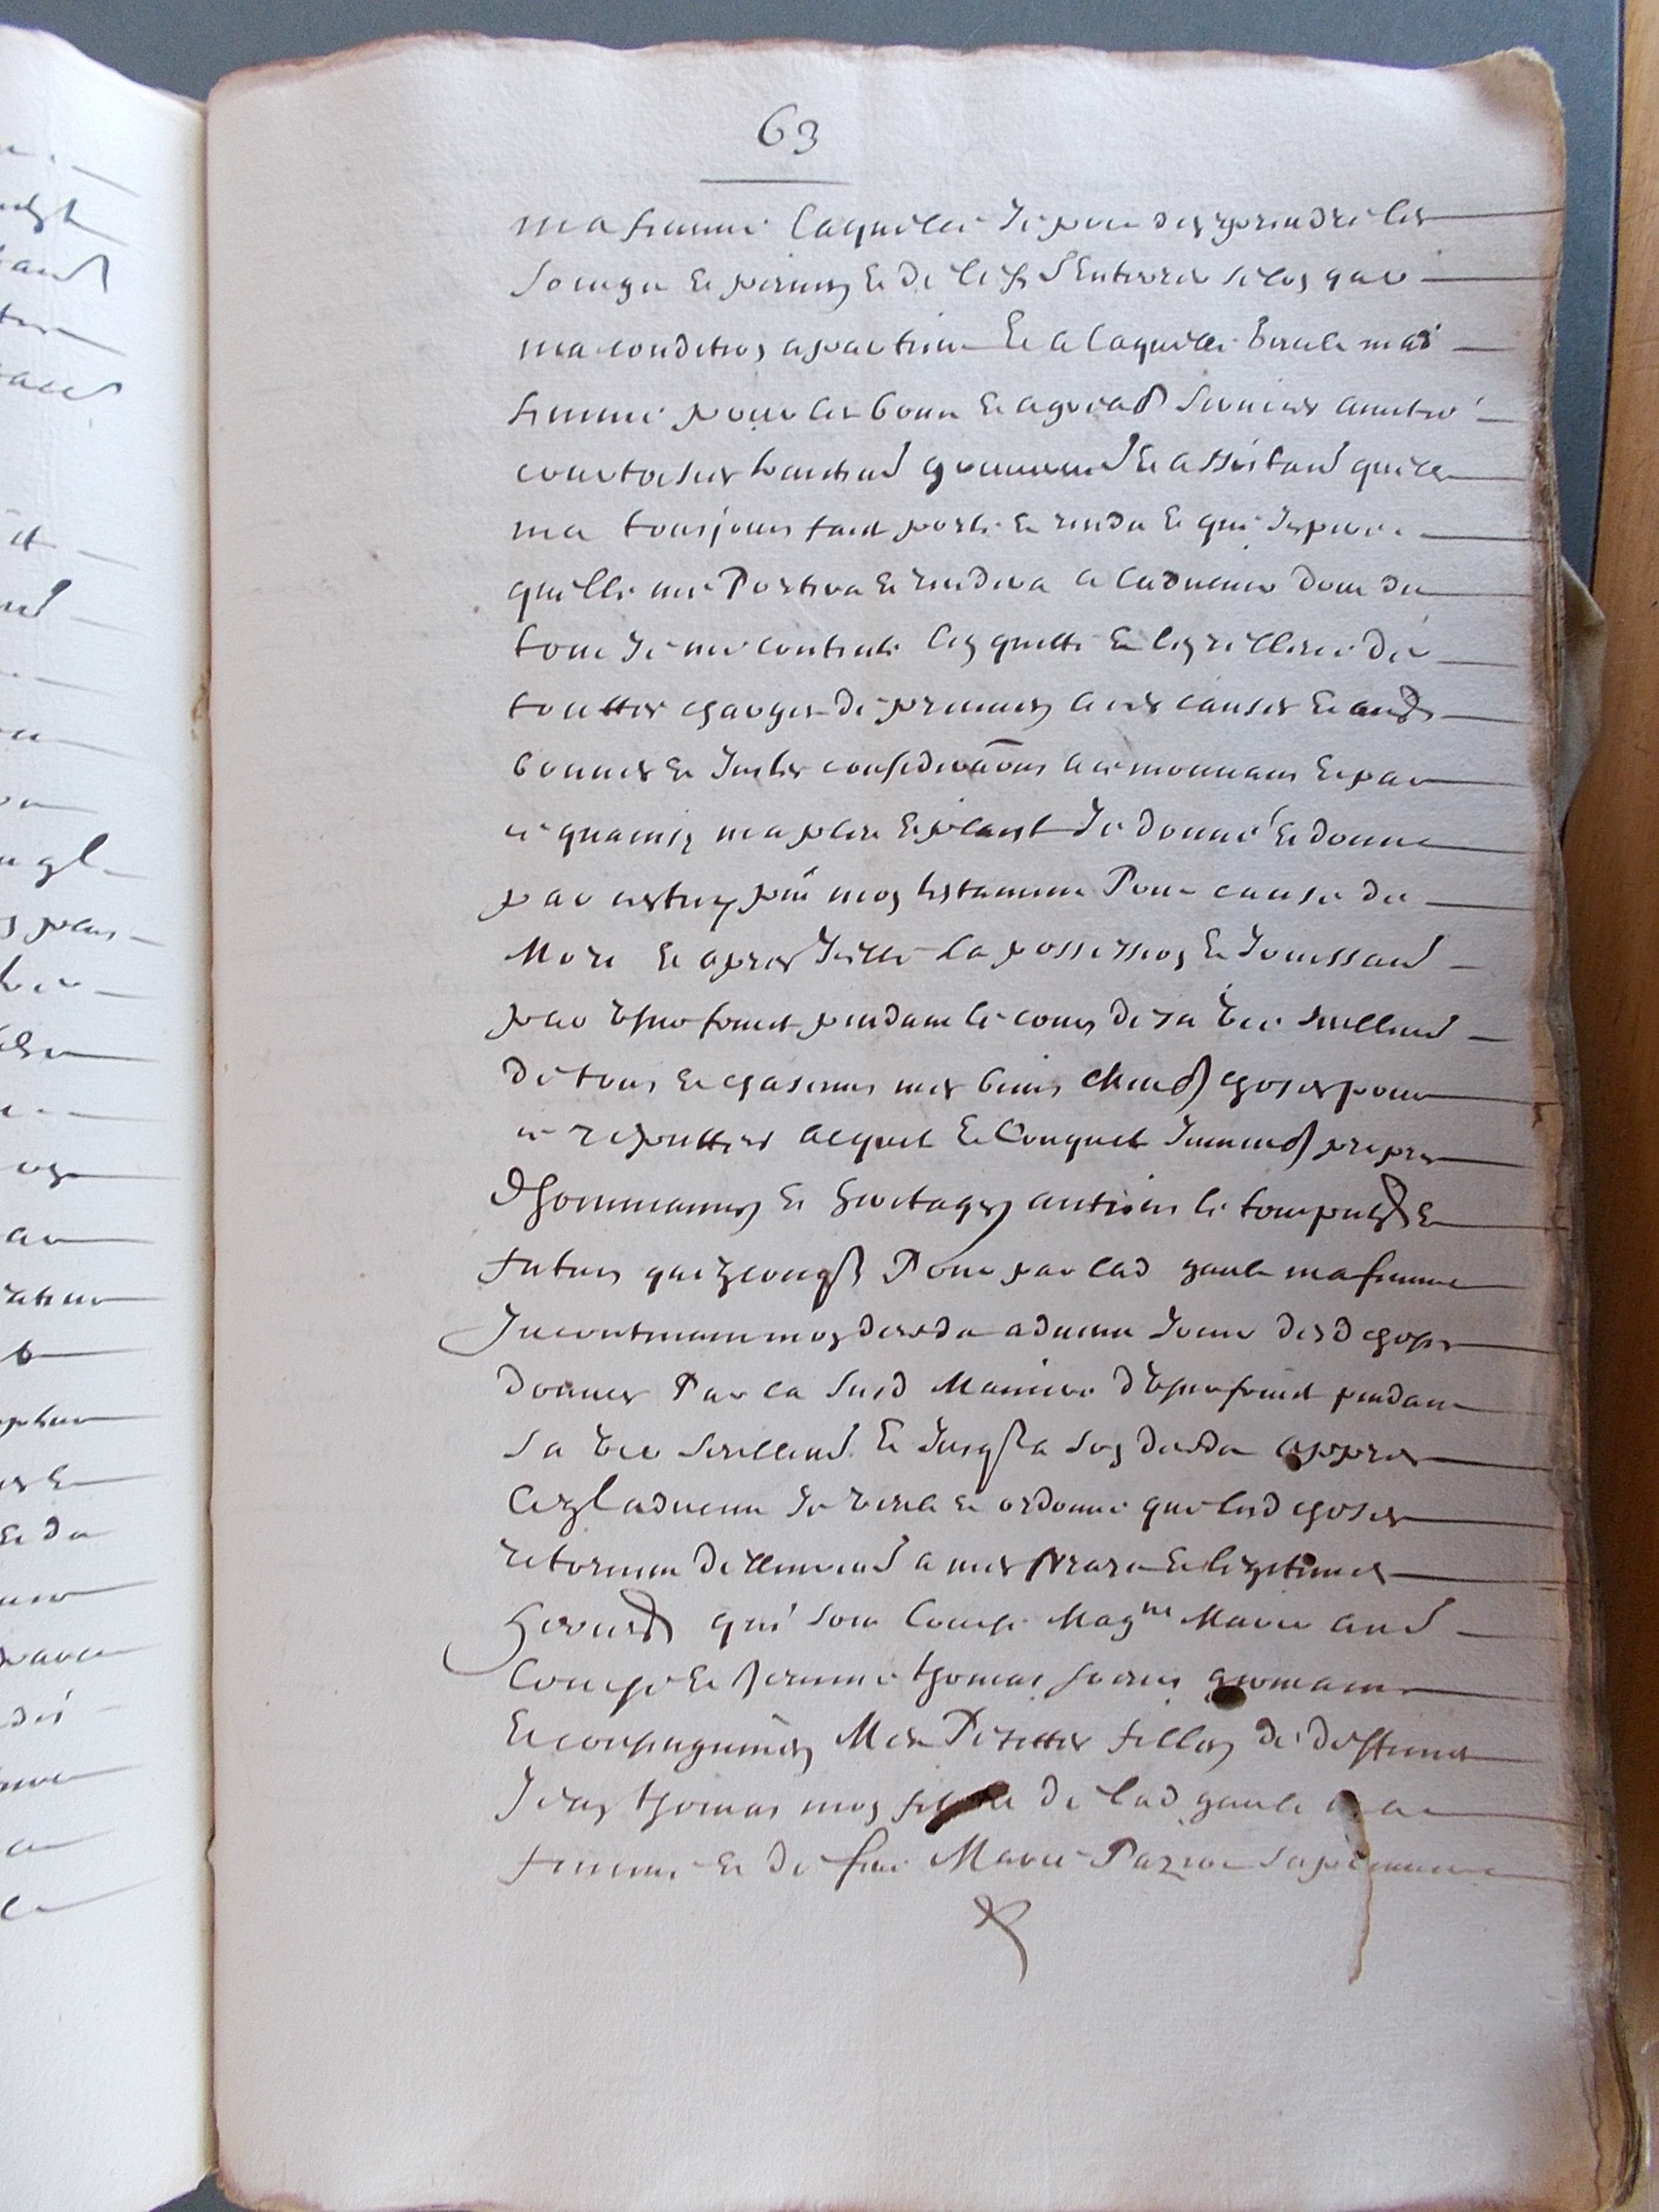 63
ma femme laquelle Je prie den prendre les
soings et peines Et de les Enterrer selon que
ma condition apartien Et a laquelle ma
femme pour les bons et agreables services amitie
courtoisies Et assistance quelle
ma tousjours faict porte et rendu Et que Jespere
quelle me Portera Et rendra a ladvenir dont du
tout Je me contente len quitte Et len relleve de
touttes charges de preuves a ces causes Et aues
bonnes Et Justes consideraons a ce mouvans Et par
ce quainsy ma pleu Et plaist Je donné Et donne
par cestuy pnt mon testament Pour cause de
Mort Et apres Jcelle la possession Et Jouissance
par usufruict pendant le cours de sa vie seullement
de tous Et chascuns mes biens meubles choses pour
ce reputtees acquest Et Conquest Immeubles propres
Et heritages antiens le tout pnts Et
futurs quelzconqs Pour par lad gaule ma femme
Incontinant mon deceda advenu Jouir desd choses
donnes Par la susd Maniere dusufruict pendant
sa vie seullement Et Jusqs a son deceda appres
lequel advenu Je veula Et ordonne que lesd choses
retornen a mes vrais Et legitimes
heritiers qui sont Louise Magne Marie and
Louise Et Jeanne thomas seurs germaines
Et Mes Petittes filles de deffunct
Jean thomas mon filz de lad gaule ma
femme Et de feue Marie sa femme